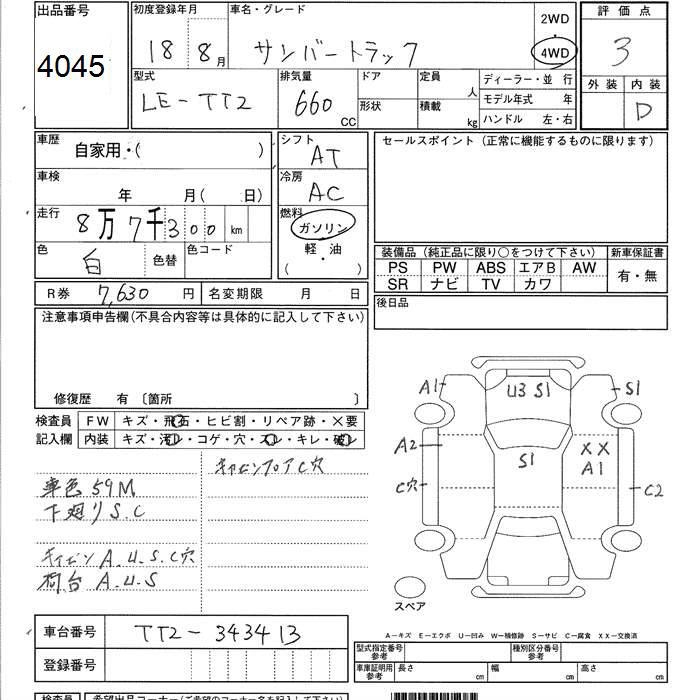 出品番号
4045
初度登録年月
18 8月
車名・グレード
サンバートラック
2WD
4WD
評価点
3
外装 内装
D
型式
LE-TT2
排気量
660 CC
ドア
形状
定員 人
積載 kg
ディーラー・並 行
モデル年式 年
ハンドル 左・右
車歴
自家用・( )
シフト
AT
セールスポイント(正常に機能するものに限ります)
車検
年 月( 日)
冷房
AC
走行
8万7千300 km
燃料
ガソリン
軽・油
( )
色
白 色替
色コード
装備品(純正品に限り○をつけて下さい)
新車保証書
PS PW ABS エアB AW
SR ナビ TV カワ
有・無
R券 7,630 円
名変期限 月 日
後日品
注意事項申告欄(不具合内容等は具体的に記入して下さい)
修復歴 有 〔箇所 〕
検査員
記入欄
FW キズ・飛石・ヒビ割・リペア跡・×要
内装 キズ・汚レ・コゲ・穴・スレ・キレ・破レ
キャビンフロアC穴
車色 59M
下廻りS.C
キャビン A.U.S.C穴
荷台 A.U.S
A1
U3 S1
S1
A2
S1
XX
A1
C穴
C2
スペア
A-キズ E-エクボ U-凹み W-補修跡 S-サビ C-腐食 XX-交換済
車台番号
TT2-343413
登録番号
型式指定番号
参考
種別区分番号
参考
車庫証明用
参考
長さ cm
幅 cm
高さ cm
検査員
希望出品コーナー(ご希望のコーナー名を記入して下さい)